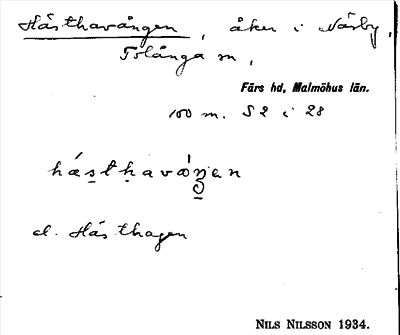 Hästhavången, åker i Näsby,
Tolånga sn,
Färs hd, Malmöhus län.
100 m. S 2 i 28
hästhavåŋen
el. Hästhagen
NILS NILSSON 1934.